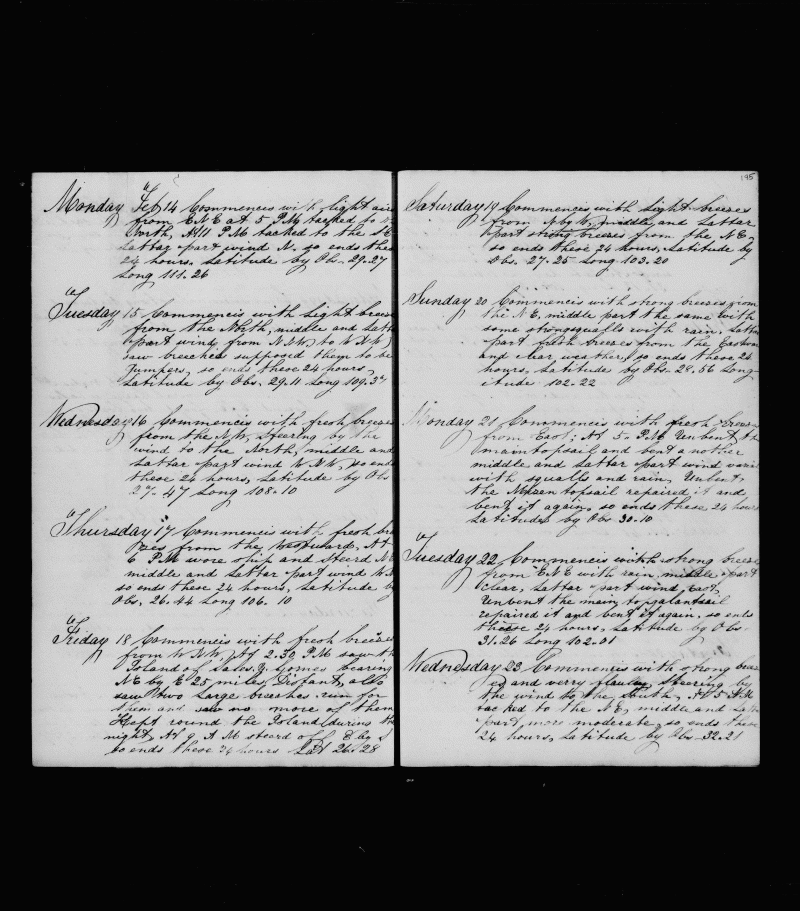 Monday Feb 14 Commencis with light airs
from ENE at 5 PM tacked to
North At 11 PM tacked to the SE
Lattar part wind N. so ends these
24 hours. Latitude by Obs. 29-27
Long 111.26
Tuesday 15 Commencis with light breezes
from the North, middle and Latt
part winds from NNW to WNW
saw breaches supposed them to be
Jumpers, so ends these 24 hours,
Latitude by Obs. 29.11 Long 109.37
Wednesday 16 Commencis with fresh breezes
from the NW, Steering by the
wind to the North, middle and
Lattar part wind WNW, so ends
these 24 hours, Latitude by Obs
27-47 Long 108-10
Thursday 17 Commencis with fresh bre
zes from the Westward, At
6 PM wore ship and Steerd N
middle and Lattar part wind W
so ends these 24 hours, Latitude by
Obs, 26.44 Long 106.10
Friday 18 Commencis with fresh breezes
from WNW, At 2.30 PM saw the
Island of Sales, y, Gomes bearing
NE by E 25 miles, Distant, also
saw two Large breaches run for
them and saw no more of them
Kept round the Island during the
night, At 9, A M steerd of E by
so ends these 24 hours Lat 26.28
195
Saturday 19 Commencis with Light breezes
from N by W, middle, and Lattar
part strong breezes from the NE,
so ends these 24 hours, Latitude by
Obs. 27-25 Long 103.20
Sunday 20 Commencis with strong breezes from
the NE, middle part the same with
some strong squalls with rain, Lattar
part fresh breezes from the Eastern
and clear weather, so ends these 24
hours, Latitude by Obs. 28.56 Long-
itude 102.22
Monday 21 Commencis with fresh breezes
from East, At 5. P.M Unbent the
maintopsail and bent a nother
middle and Lattar part wind varia
with squalls and rain, Unbent,
the Mizen topsail repaired it and
bent it again, so ends these 24 hours
Latitude by Obs 30-10
Tuesday 22 Commencis with strong breezes
from ENE with rain, middle part
clear, Lattar part wind, East,
Unbent the main topgalantsail
repaired it and bent it again, so ends
these 24 hours, Latitude by Obs-
31.26 Long 102.01
Wednesday 23 Commencis with strong breez
es and verry Steering by
the wind to the South, At 5 P.M
tacked to the NE, middle and Latt
part, more moderate, so ends these
24 hours, Latitude by Obs-32.21